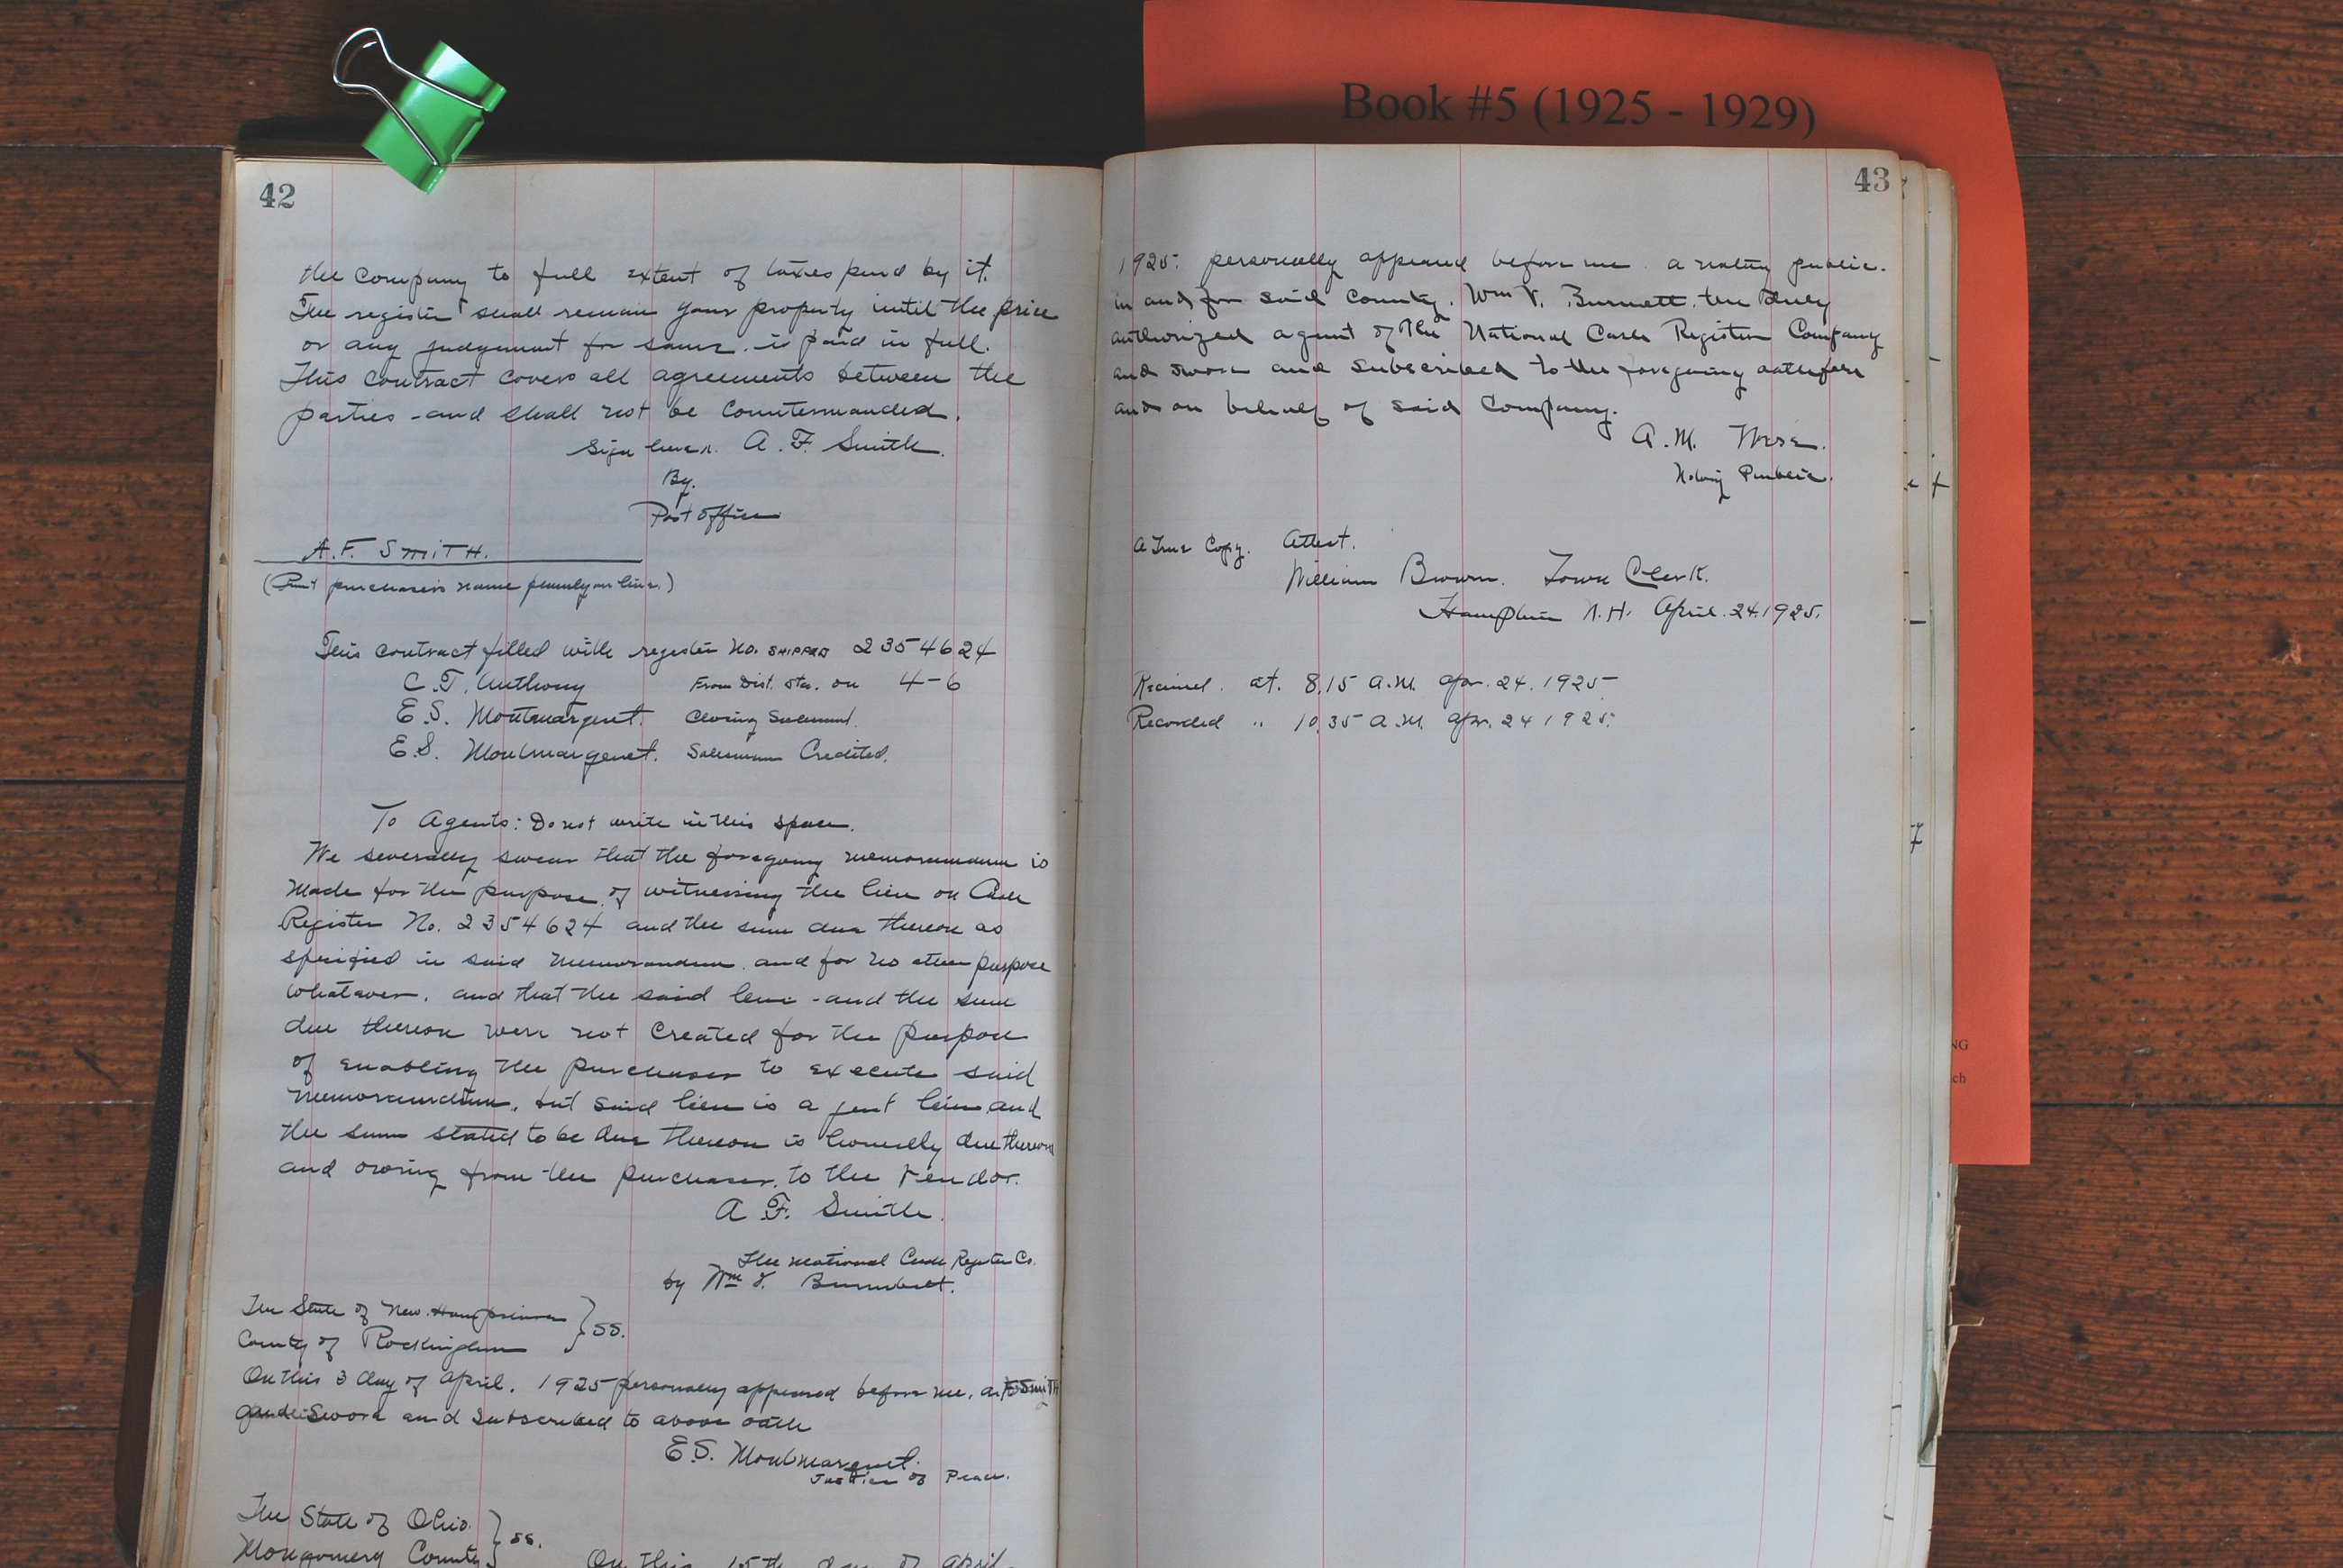 Book #5 (1925 - 1929)
42
the company to full extent of taxes paid by it.
The register shall remain your property until the price
or any judgement for same. is paid in full.
This contract covers all agreements between the
parties - and shall not be countermanded.
Sign here. A. F. Smith.
By.
Post Office
A.F. SMITH.
(Print purchaser's name plainly on line.)
This contract filled with register No. SHIPPED 2354624
C. T. Anthony From Dist. Sta. on 4-6
E. S. Montmarquet. Closing Salesman.
E. S. Montmarquet. Salesman Credited.
To Agents: Do not write in this space.
We severally swear that the foregoing memorandum is
Made for the purpose of witnessing the lien on Cash
Register No. 2354624 and the sum due thereon as
specified in said Memorandum. and for no other purpose
whatever. and that the said lien - and the sum
due thereon were not created for the purpose
of enabling the purchaser to execute said
Memorandum. but said lien is a just lien and
the sum stated to be due thereon is honestly due thereon
and owing from the purchaser. to the Vendor.
A F. Smith.
The National Cash Register Co.
by Wm V. Burnett.
The State of New. Hampshire } ss.
County of Rockingham
On this 3 day of April. 1925 personally appeared before me, A. F. Smith
Sworn and subscribed to above oath
E. S. Montmarquet.
Justice of Peace.
The State of Ohio. } ss.
Montgomery County On this 15th day of April
43
1925. personally appeared before me a notary public.
in and for said County. Wm V. Burnett. the duly
authorized agent of The National Cash Register Company
and sworn and subscribed to the foregoing oath for
and on behalf of said Company.
A. M.
Notary Public.
A True Copy. Attest.
William Brown. Town Clerk.
Hampton N.H. April. 24. 1925.
Received. at. 8.15 A.M. Apr. 24. 1925
Recorded " 10.35 A.M. Apr. 24 1925.
NG
ch